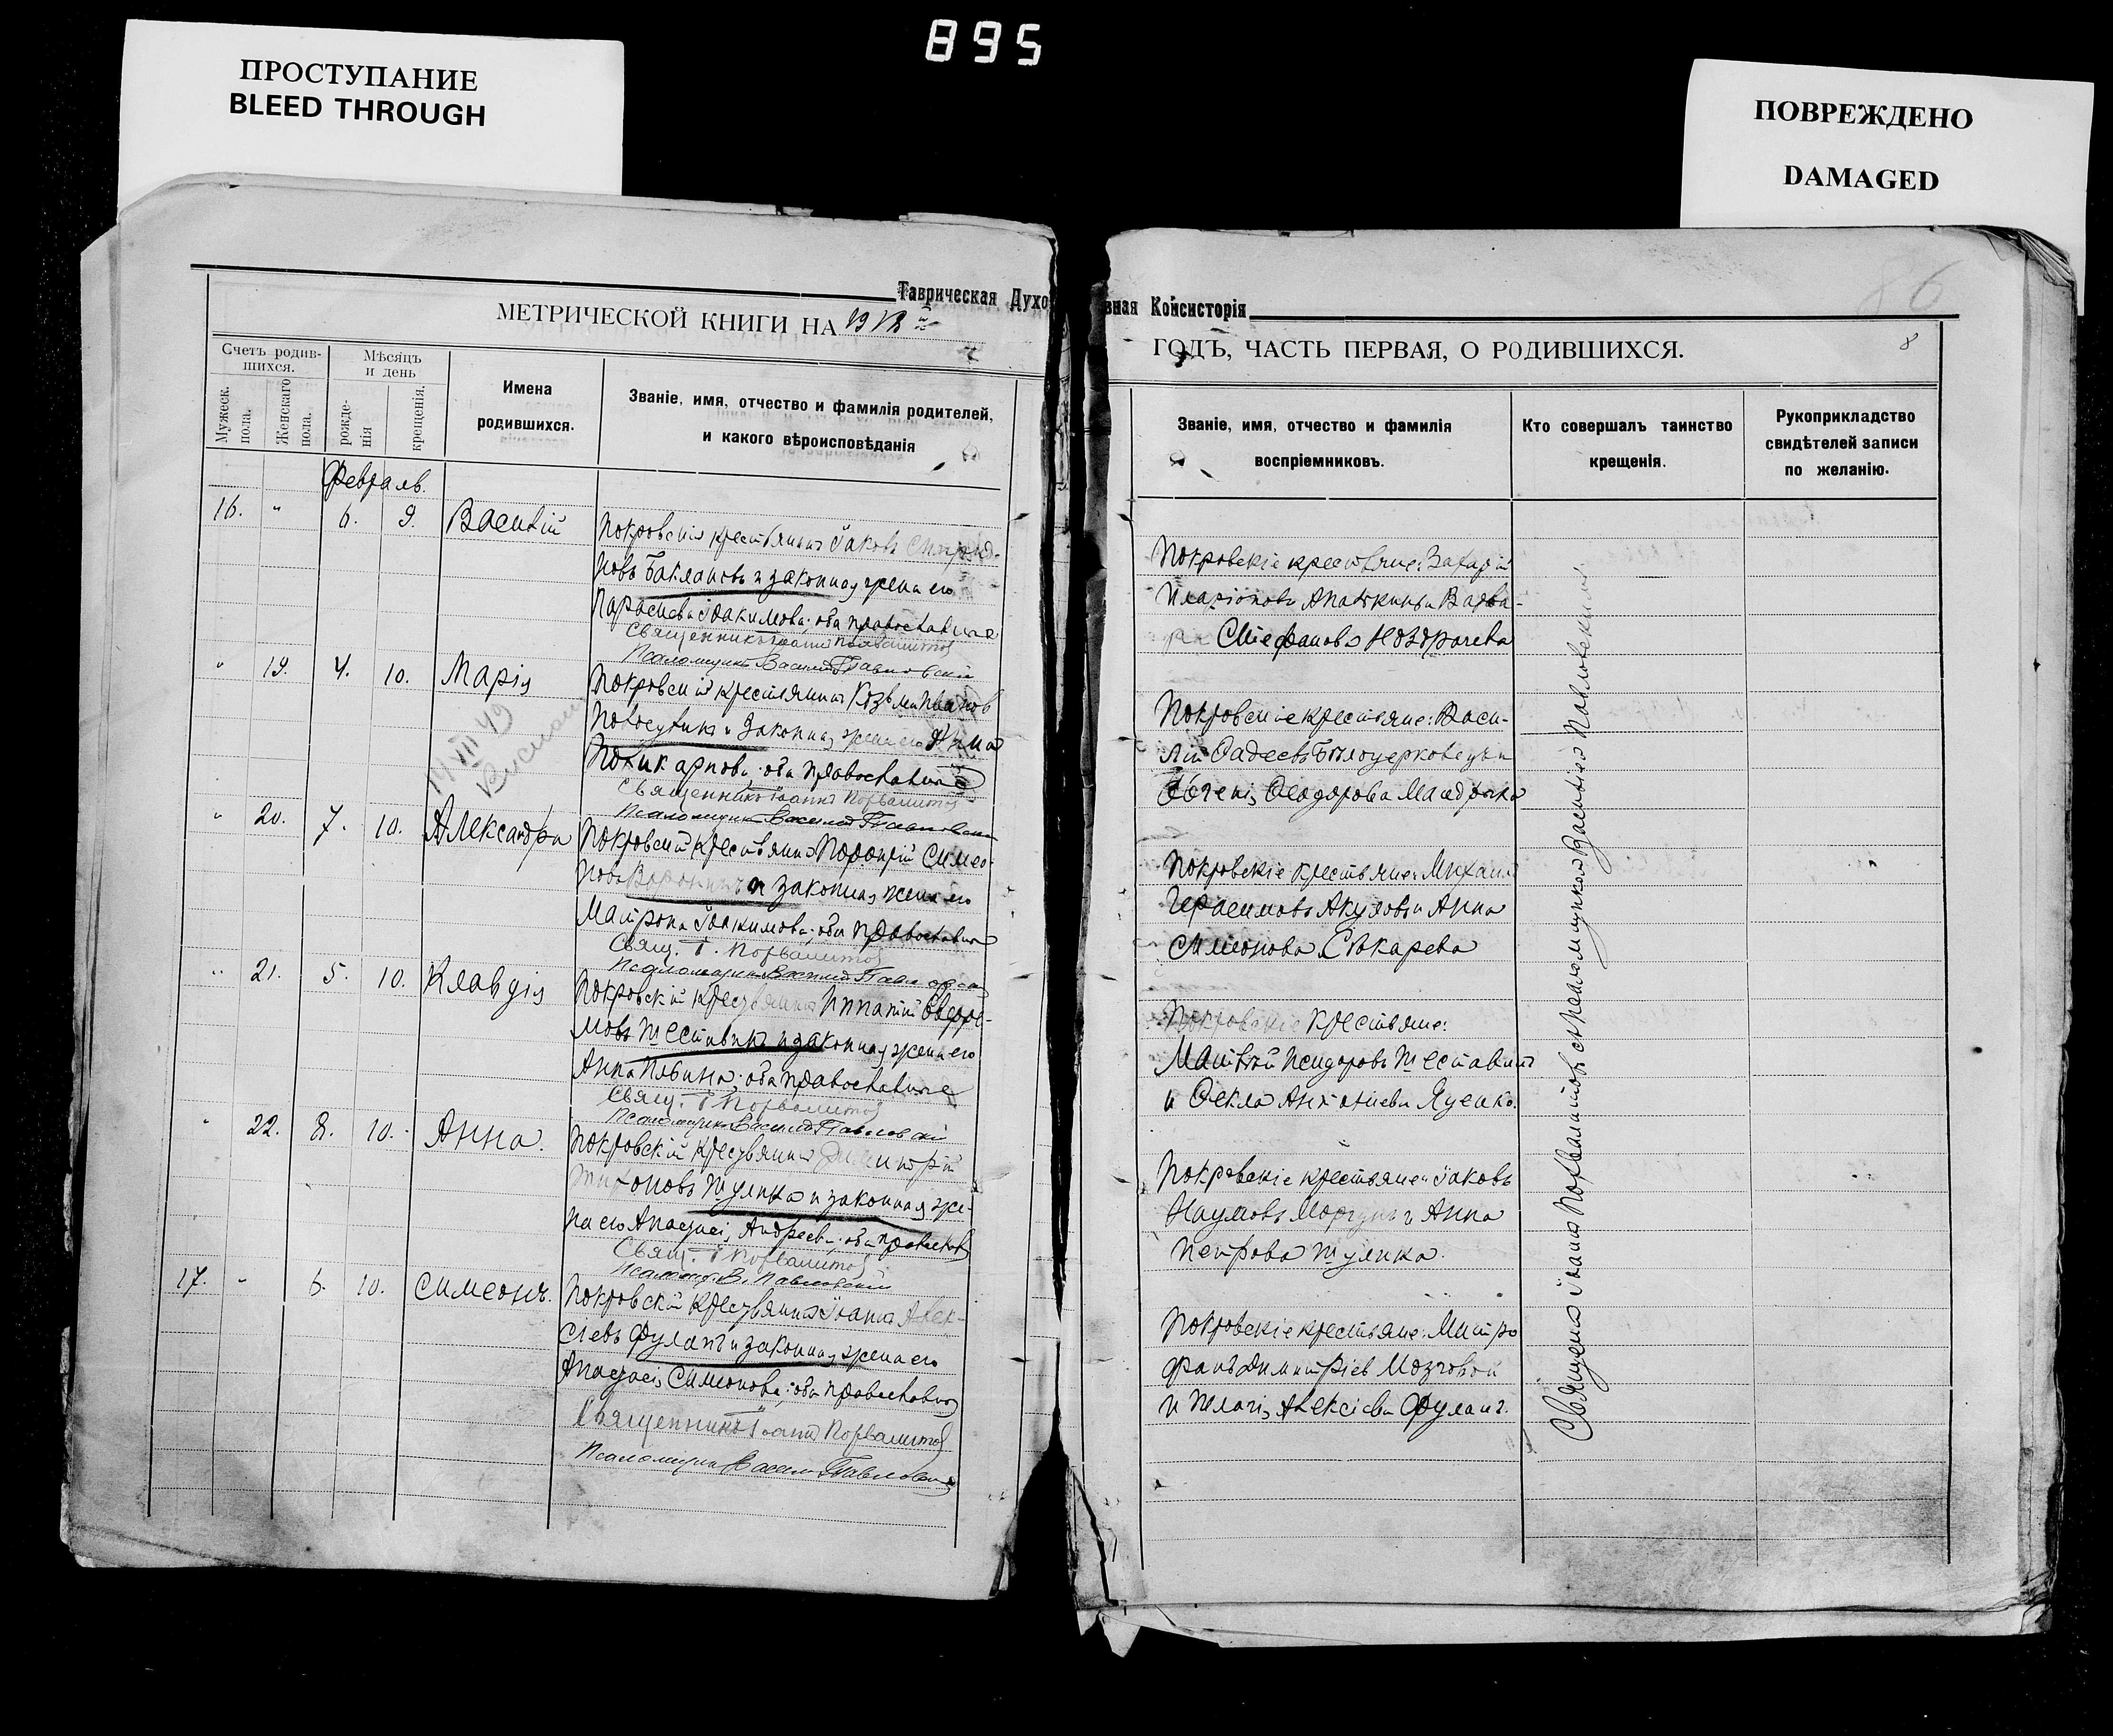 895
ПРОСТУПАНИЕ
BLEED THROUGH
ПОВРЕЖДЕНО
DAMAGED
Таврическая Духо
МЕТРИЧЕСКОЙ КНИГИ НА
Счетъ родив-
шихся.
Мужеск. пола.
Женскаго пола.
Мѣсяцъ
и день
рожде-
нія
крещенія.
Имена
родившихся.
Званіе, имя, отчество и фамилія родителей,
и какого вѣроисповѣданія
Февраль.
16. " 6. 9. Василій
Покровскій крестьянинъ Іаковъ Спирид-
новъ Баклановъ и законная жена его
Параскева Іоакимова; оба православные
Священникъ Іоаннъ Похвалитовъ
Псаломщикъ Василій Павловскій
" 19. 4. 10. Марія
Покровскій крестьянинъ Козьма Ивановъ
и законная жена его Анна
Поликарпова; оба православные
Священникъ Іоаннъ Похвалитовъ
Псаломщикъ Василій Павловскій
" 20. 7. 10. Александра
Покровскій крестьянинъ Порфирій Симео-
новъ Воронинъ и законная жена его
Матрона Іоакимова; оба православные
Свящ. І. Похвалитовъ
Псаломщикъ Василій Павловскій
" 21. 5. 10. Клавдія
Покровскій крестьянинъ Ипатій
мовъ Шеставинъ и законная жена его
Анна оба православные
Свящ. І Похвалитовъ
Псаломщикъ Василій Павловскій
" 22. 8. 10. Анна.
Покровскій крестьянинъ Димитрій
Шулика и законная же-
на его Анастасія Андреева; оба православ
Свящ. І Похвалитовъ
Псаломщ. В. Павловскій
17. " 6. 10. Симеонъ.
Покровскій крестьянинъ Іоаннъ Алек-
сіевъ Фуланъ и законная жена его
Анастасія Симеонова; оба православные
Священникъ Іоаннъ Похвалитовъ
Псаломщикъ Василій Павловскій
86
вная Консисторія
ГОДЪ, ЧАСТЬ ПЕРВАЯ, О РОДИВШИХСЯ.
8
Званіе, имя, отчество и фамилія
воспріемниковъ.
Кто совершалъ таинство
крещенія.
Рукоприкладство
свидѣтелей записи
по желанію.
Покровскіе крестьяне: Захарій
Иларіоновъ Апашкинъ и Варва-
ра Стефанова Ноздрачева
Покровскіе крестьяне: Васи-
лій Фадеевъ Бѣлоцерковецъ и
Евгенія Феодорова
Покровскіе крестьяне: Михаилъ
Герасимовъ Акуловъ и Анна
Симеонова Сѣкарева
Покровскіе крестьяне:
Матвѣй Исидоровъ Шеставинъ
и Фекла Яценко.
Покровскіе крестьяне: Іаковъ
Наумовъ Моргунъ и Анна
Петрова Шулика.
Покровскіе крестьяне: Митро
фанъ Димитріевъ Мозговой
и Пелагія Алексіева Фуланъ.
Священникъ Іоаннъ Похвалитовъ съ псаломщикомъ Василіемъ Павловскимъ